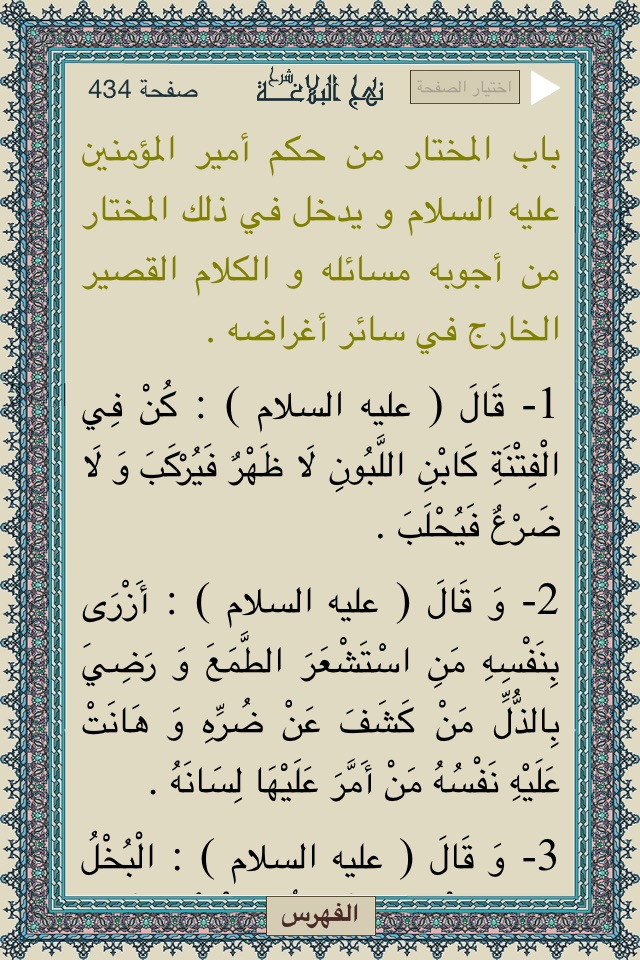 اختيار الصفحة
شرح نهج البلاغة
صفحة 434
باب المختار من حكم أمير المؤمنين
عليه السلام و يدخل في ذلك المختار
من أجوبه مسائله و الكلام القصير
الخارج في سائر أغراضه .
1- قَالَ ( عليه السلام ) : كُنْ فِي
الْفِتْنَةِ كَابْنِ اللَّبُونِ لَا ظَهْرٌ فَيُرْكَبَ وَ لَا
ضَرْعٌ فَيُحْلَبَ .
2- وَ قَالَ ( عليه السلام ) : أَزْرَى
بِنَفْسِهِ مَنِ اسْتَشْعَرَ الطَّمَعَ وَ رَضِيَ
بِالذُّلِّ مَنْ كَشَفَ عَنْ ضُرِّهِ وَ هَانَتْ
عَلَيْهِ نَفْسُهُ مَنْ أَمَّرَ عَلَيْهَا لِسَانَهُ .
3- وَ قَالَ ( عليه السلام ) : الْبُخْلُ
الفهرس